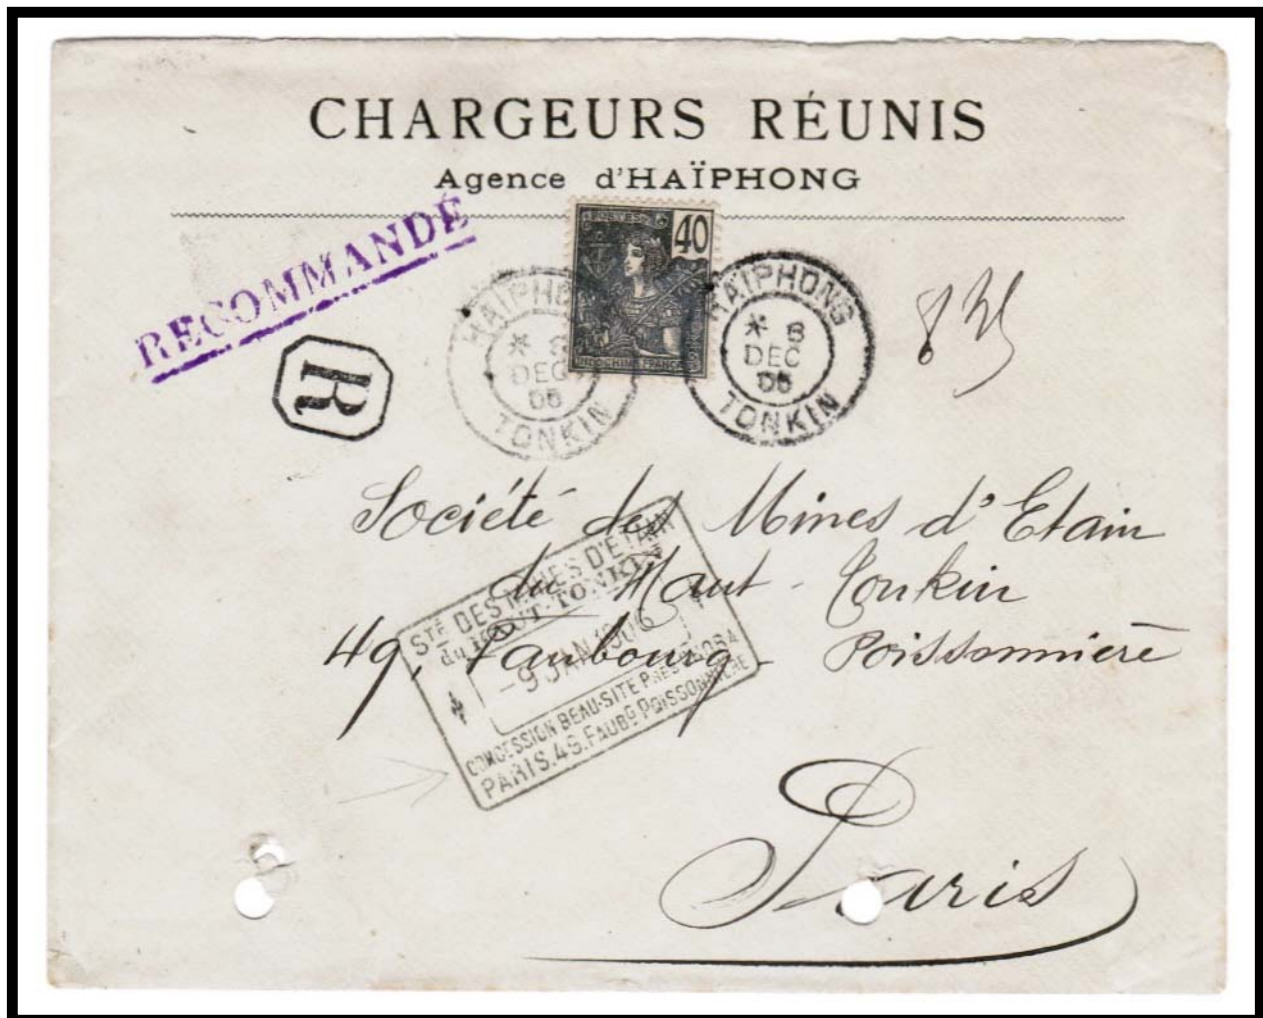 CHARGEURS RÉUNIS
Agence d'HAÏPHONG
RECOMMANDÉ
R
POSTES
40
INDOCHINE FRANÇAISE
HAIPHONG
* 8
DEC
05
TONKIN
HAIPHONG
* 8
DEC
05
TONKIN
Société des Mines d'Etain
du Haut-Tonkin
49, Faubourg Poissonnière
Paris
STÉ DES MINES D'ETAIN
du HAUT-TONKIN
-9 JAN 1906
CONCESSION BEAU-SITE PRES
PARIS.49.FAUBG POISSONNIERE